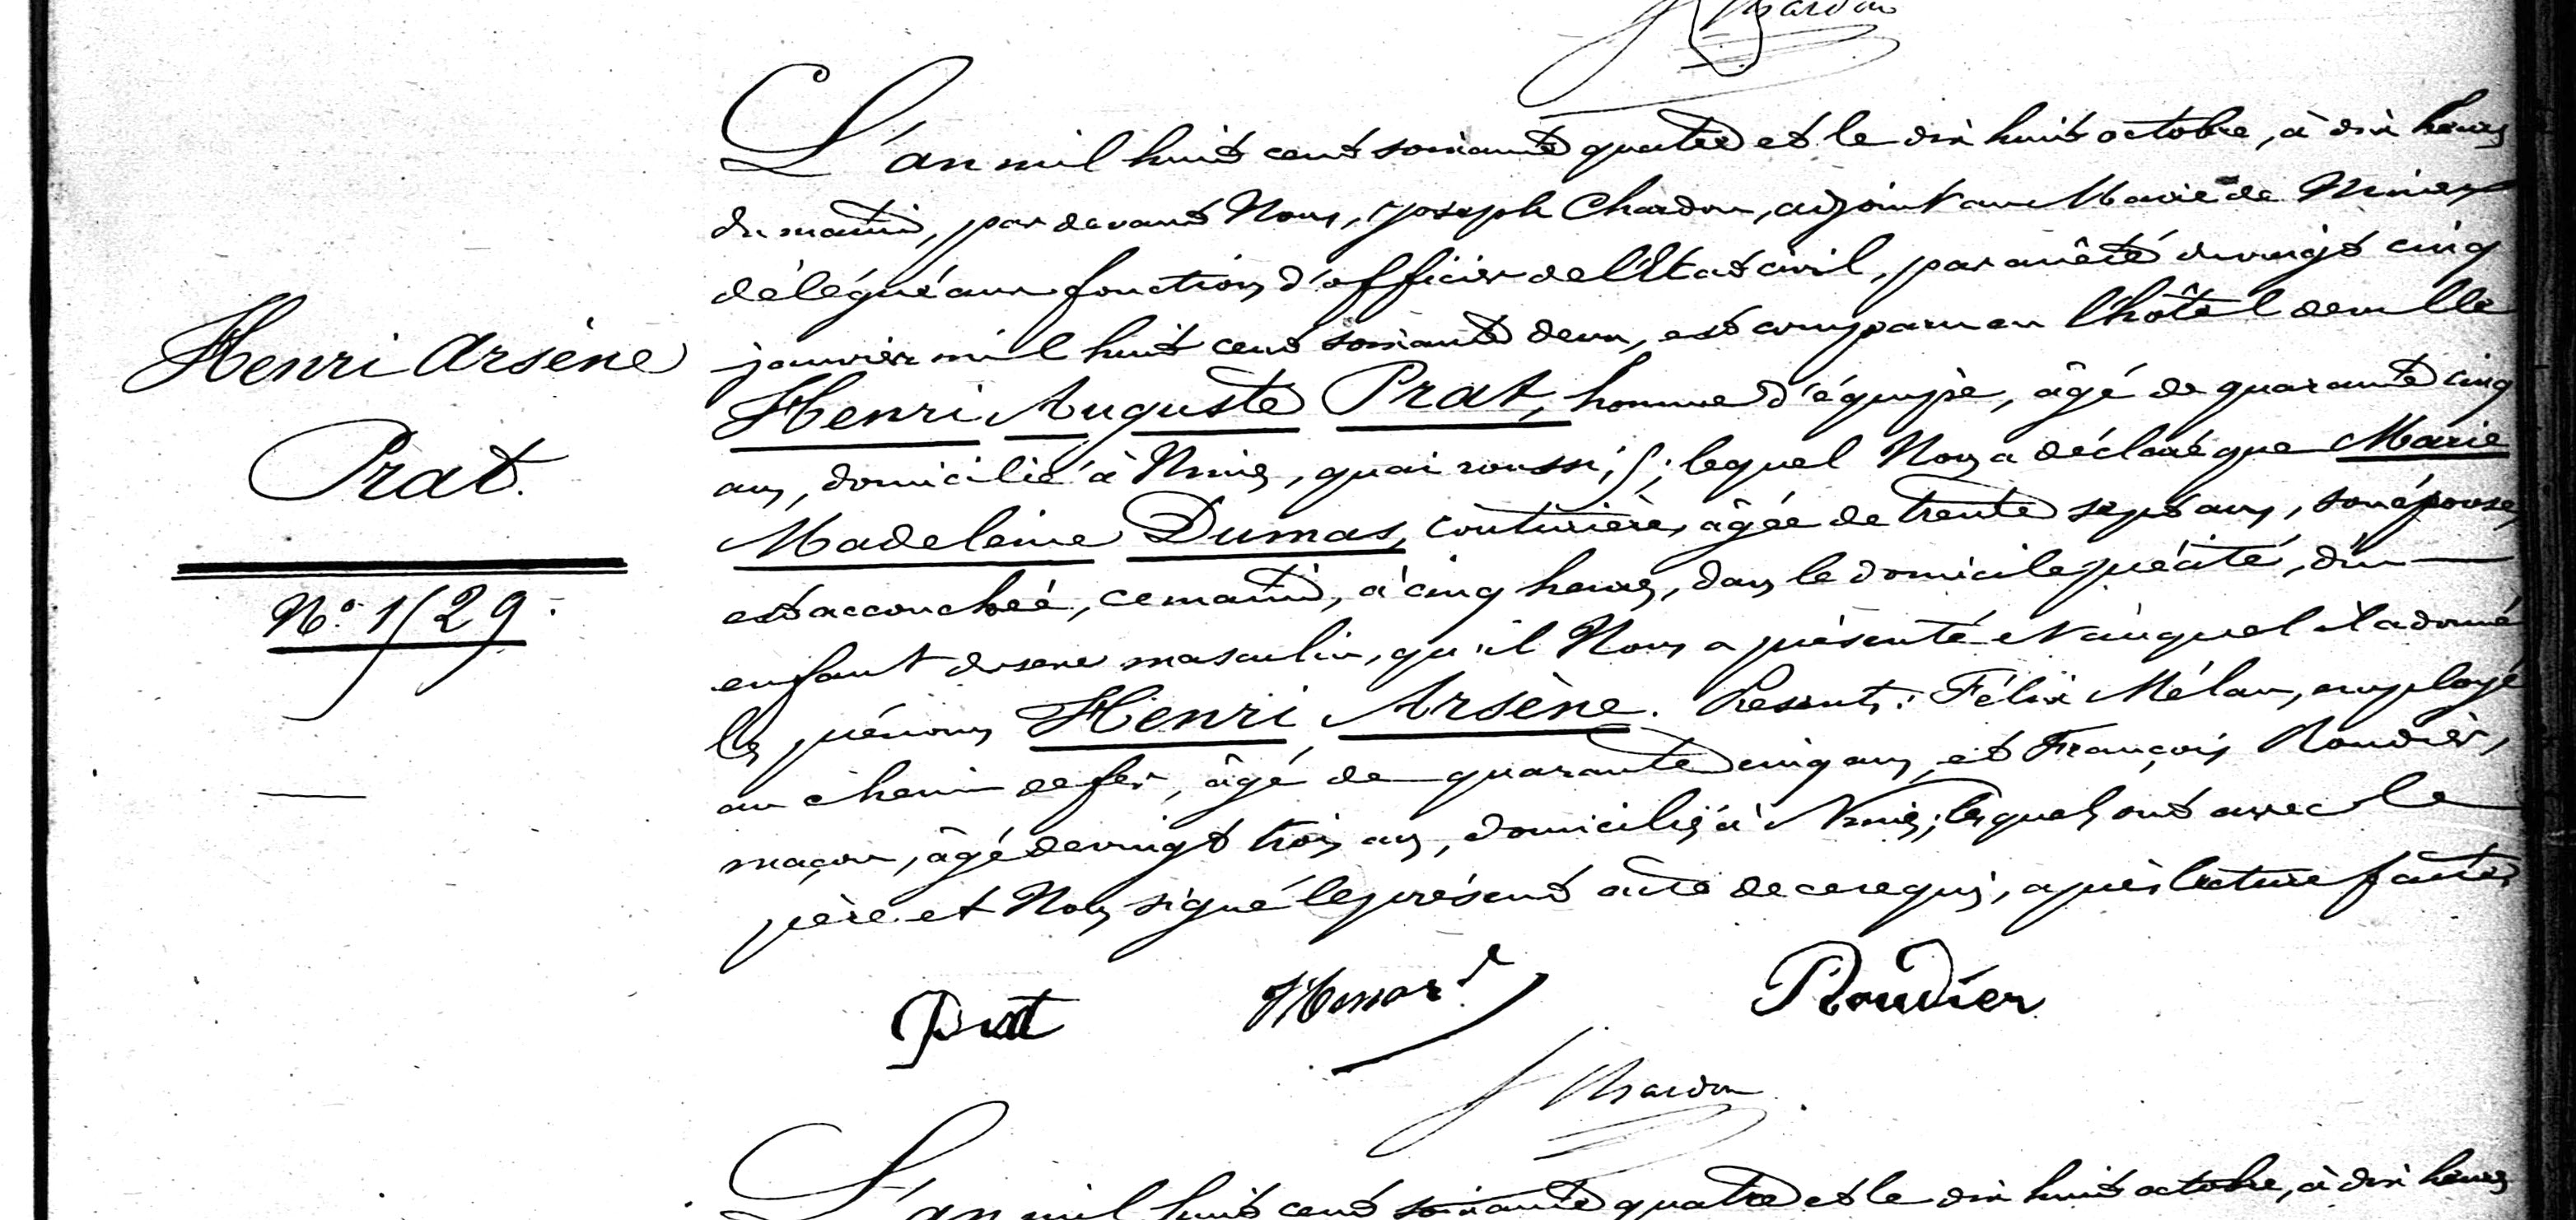 Chardon
L'an mil huit cent soixante quatre et le dix huit octobre, à dix heures
du matin, par devant Nous, Joseph Chardon, adjoint au Maire de Nimes
délégué aux fonctions d'officier de l'Etat civil, par arrêté du vingt cinq
janvier mil huit cent soixante deux, est comparu en l'hôtel de ville
Henri Auguste Prat, homme d'équipe, âgé de quarante cinq
ans, domicilié à Nimes, quai roussi, 5; lequel Nous a déclaré que Marie
Madeleine Dumas, couturière, âgée de trente sept ans, son épouse,
est accouchée, ce matin, à cinq heures, dans le domicile précité, d'un
enfant du sexe masculin, qu'il Nous a présenté et auquel il a donné
les prénoms Henri Arsène. Présents: Félix Mélan, employé
au chemin de fer, âgé de quarante cinq ans, et François Roudier,
maçon, âgé de vingt trois ans, domiciliés à Nimes; lesquels ont avec le
père et Nous signé le présent acte de ce requis, après lecture faite
Henri Arsène
Prat.
N° 1529.
Prat
Roudier
J Chardon
L'an mil huit cent soixante quatre et le dix huit octobre, à dix heures